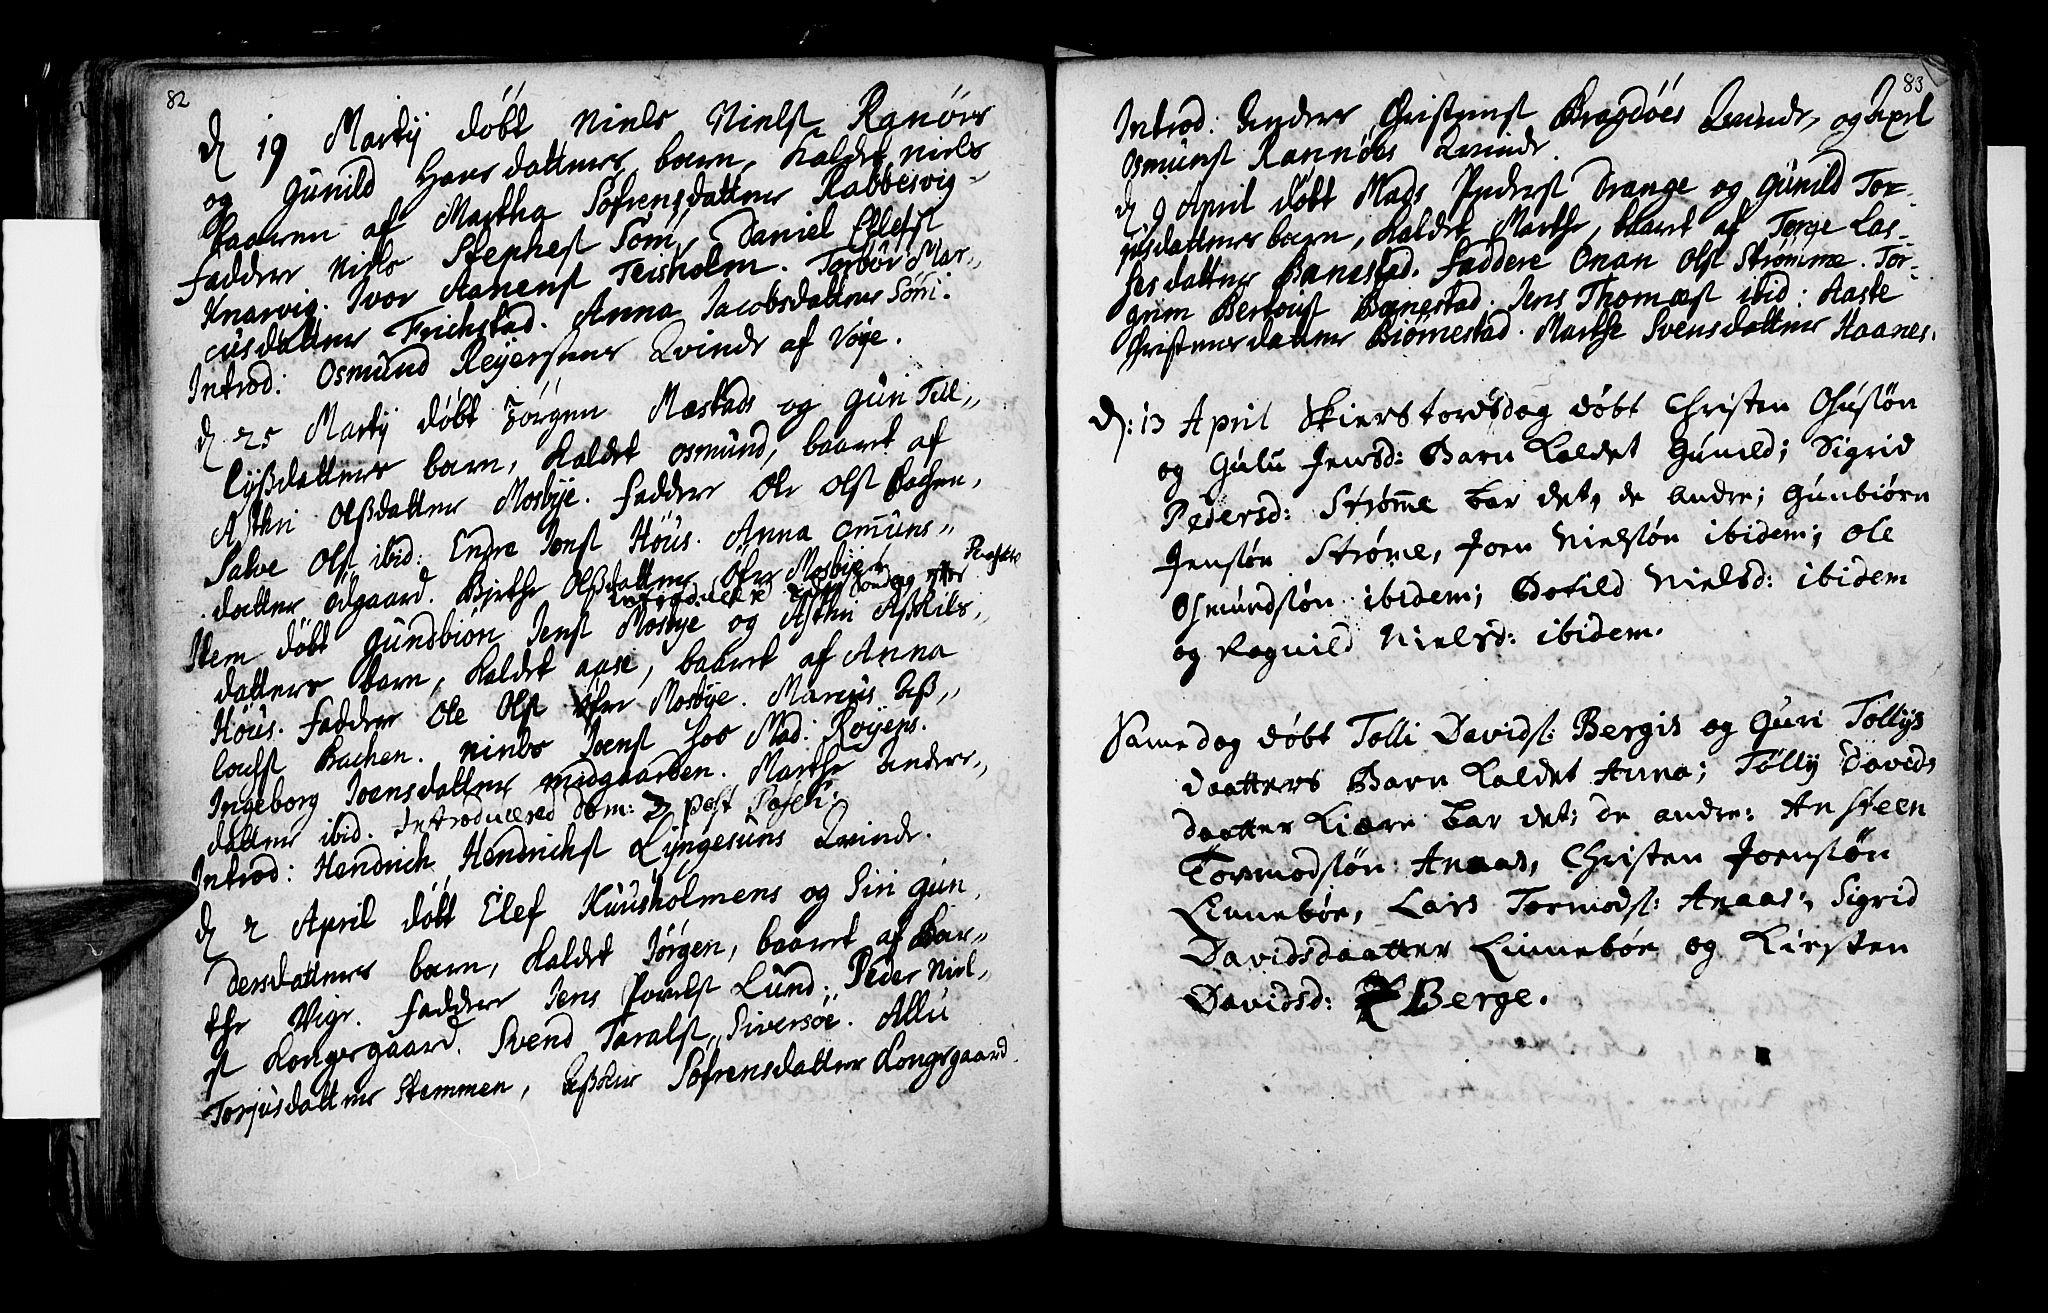 82
d 19 Martij döbt Niels Nielss Ranöes
og Gunild Hans datters barn, kaldet Niels
baaren af Martha Söfrensdatter Rabbesvig
faddere Niels Stephess Söm, Daniel Ellefss
Knarvig. Ivor Aanenss Teisholm. Torbör Mar-
cusdatter Frichstad. Anna Jacobsdatter Söm.
Introd: Osmund Reÿersens Qvinde af Vöÿe.
d 25 Martij döbt Jörgen Mæstads og Gun Tel-
lÿßdatters barn, kaldet osmund, baaret af
Asthri Olßdatter Mosbÿe. faddere Ole Olss Bachen,
Salve Olss ibid: Endre Jenss Höus. Anna omuns-
datter ödgaard. Birthe Olßdatter öfre Mosbÿe.
Introduceret söndag efter Paaske
Item döbt Gundbiörn Jenss Mosbÿe og Asthri Aßkils-
datters barn, kaldet aase, baaret af Anna
Höus. fadder Ole Olss öfre Mosbÿe. Marcus Aß-
lachss Bachen. Niels Joenss hos Mad: Roÿens.
Ingeborg Joensdatter midgaarden. Marthe Anders-
datter ibid. Introduceret dom: 2 post Pasch:
Introd: Hendrich Hendrichss Lÿngesuns Qvinde.
d 2 April döbt Elef Kuusholmens og Siri Gun-
dersdatters barn, kaldet Jörgen, baaret af Bar-
the Vige. faddere Jens Povelss Lund. Peder Niel-
ss Kongsgaard. Svend Taralss, Siversöe. Allu
Torjusdatter Stemmen, Aßlau Söfrensdatter Kongsgaard.
83
Introd: Anders Christenss Bragdöes Qvinde, og Axel
Osmunss Rannöes Qvinde.
d 9 April döbt Mads Pederss Drange og Gunild Tor-
jusdatters barn, kaldet Marthe, baaret af Torge Las-
ses datter Banestad. faddere Onan Olss Strömme. Tor-
grim Berlouss Banestad. Jens Thomæss ibid: Aaste
Christensdatter Biörnestad. Marthe Svensdatter Haanes.
D: 13 April Skierstorsdag döbt Christen Osuslön
og Gulu Jensd: Barn kaldet Gunild; Sigrid
Pedersd: Strömme bar det, de andre; Gunbiörn
Jensön Ströme, Joen Nielsön ibidem; Ole
Osmundsön ibidem; Botild Nielsd: ibidem
og Ragnild Nielsd: ibidem.
Samedag döbt Tolli Davids: Bergis og Guri Tollijs
daatters Barn kaldet Anna; Tölly Davids
daatter Kiære bar det; de andre: Ansteen
Tormodsön Anaas, Christen Joensön
Linnebön, Lars Tormods: Anaas, Sigrid
Davidsdaatter Linnebön og Kirsten
Davidsd: Berge.